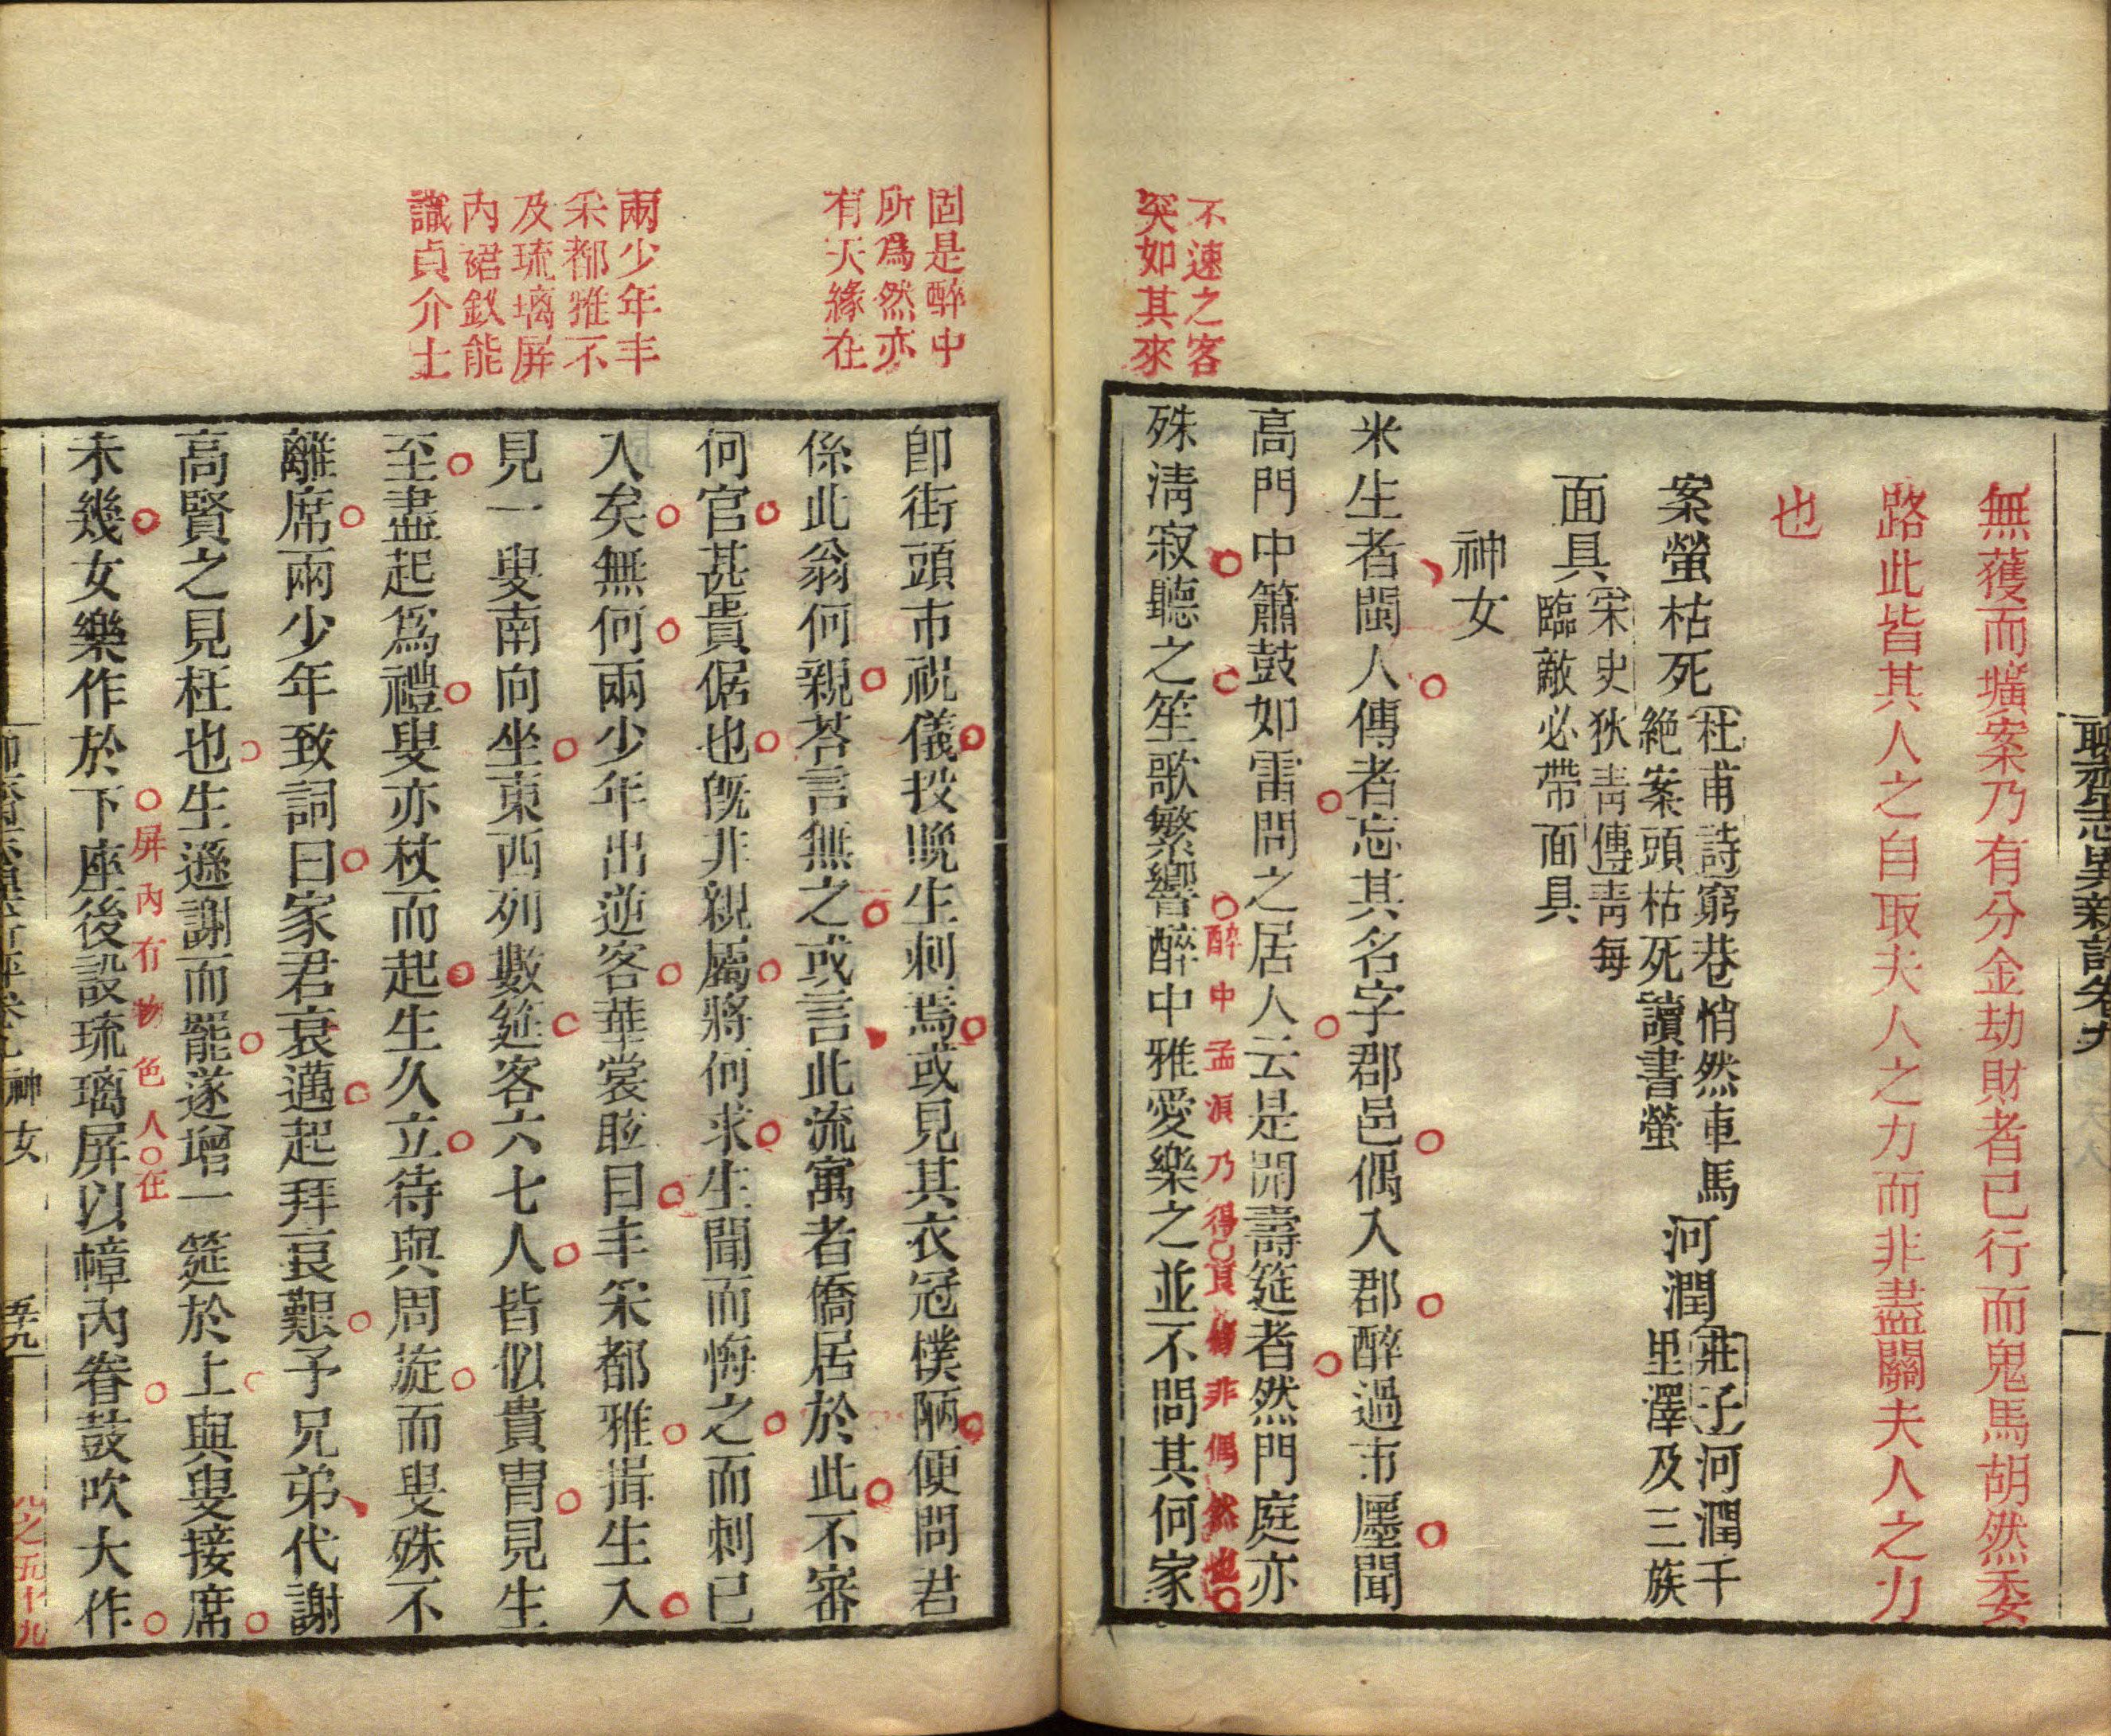 聊齋志異新評卷九
無獲而壙案乃有分金劫財者已行而鬼馬胡然委
路此皆其人之自取夫人之力而非盡關夫人之力
也
案螢枯死
杜甫詩窮巷悄然車馬
絕案頭枯死讀書螢
河潤
莊子河潤千
里澤及三族
面具
宋史狄青傳青每
臨敵必帶面具
神女
米生者閩人傳者忘其名字郡邑偶入郡醉過市廛聞
高門中簫鼓如雷問之居人云是開壽筵者然門庭亦
殊淸寂聽之笙歌繁響醉中雅愛樂之並不問其何家
醉中孟浪乃得
非偶然也
不速之客
突如其來
卽街頭市祝儀投晚生刺焉或見其衣冠樸陋便問君
係此翁何親荅言無之或言此流寓者僑居於此不審
何官甚貴倨也旣非親屬將何求生聞而悔之而刺已
入矣無何兩少年出逆客華裳眩目丰采都雅揖生入
見一叟南向坐東西列數筵客六七人皆似貴胄見生
至盡起爲禮叟亦杖而起生久立待與周旋而叟殊不
離席兩少年致詞曰家君衰邁起拜良艱予兄弟代謝
高賢之見枉也生遜謝而罷遂增一筵於上與叟接席
未幾女樂作於下座後設琉璃屛以幛內眷鼓吹大作
屏內有物色人在
固是醉中
所爲然亦
有天緣在
兩少年丰
采都雅不
及琉璃屏
內裙釵能
識貞介士
神女
五十九
九之五十九